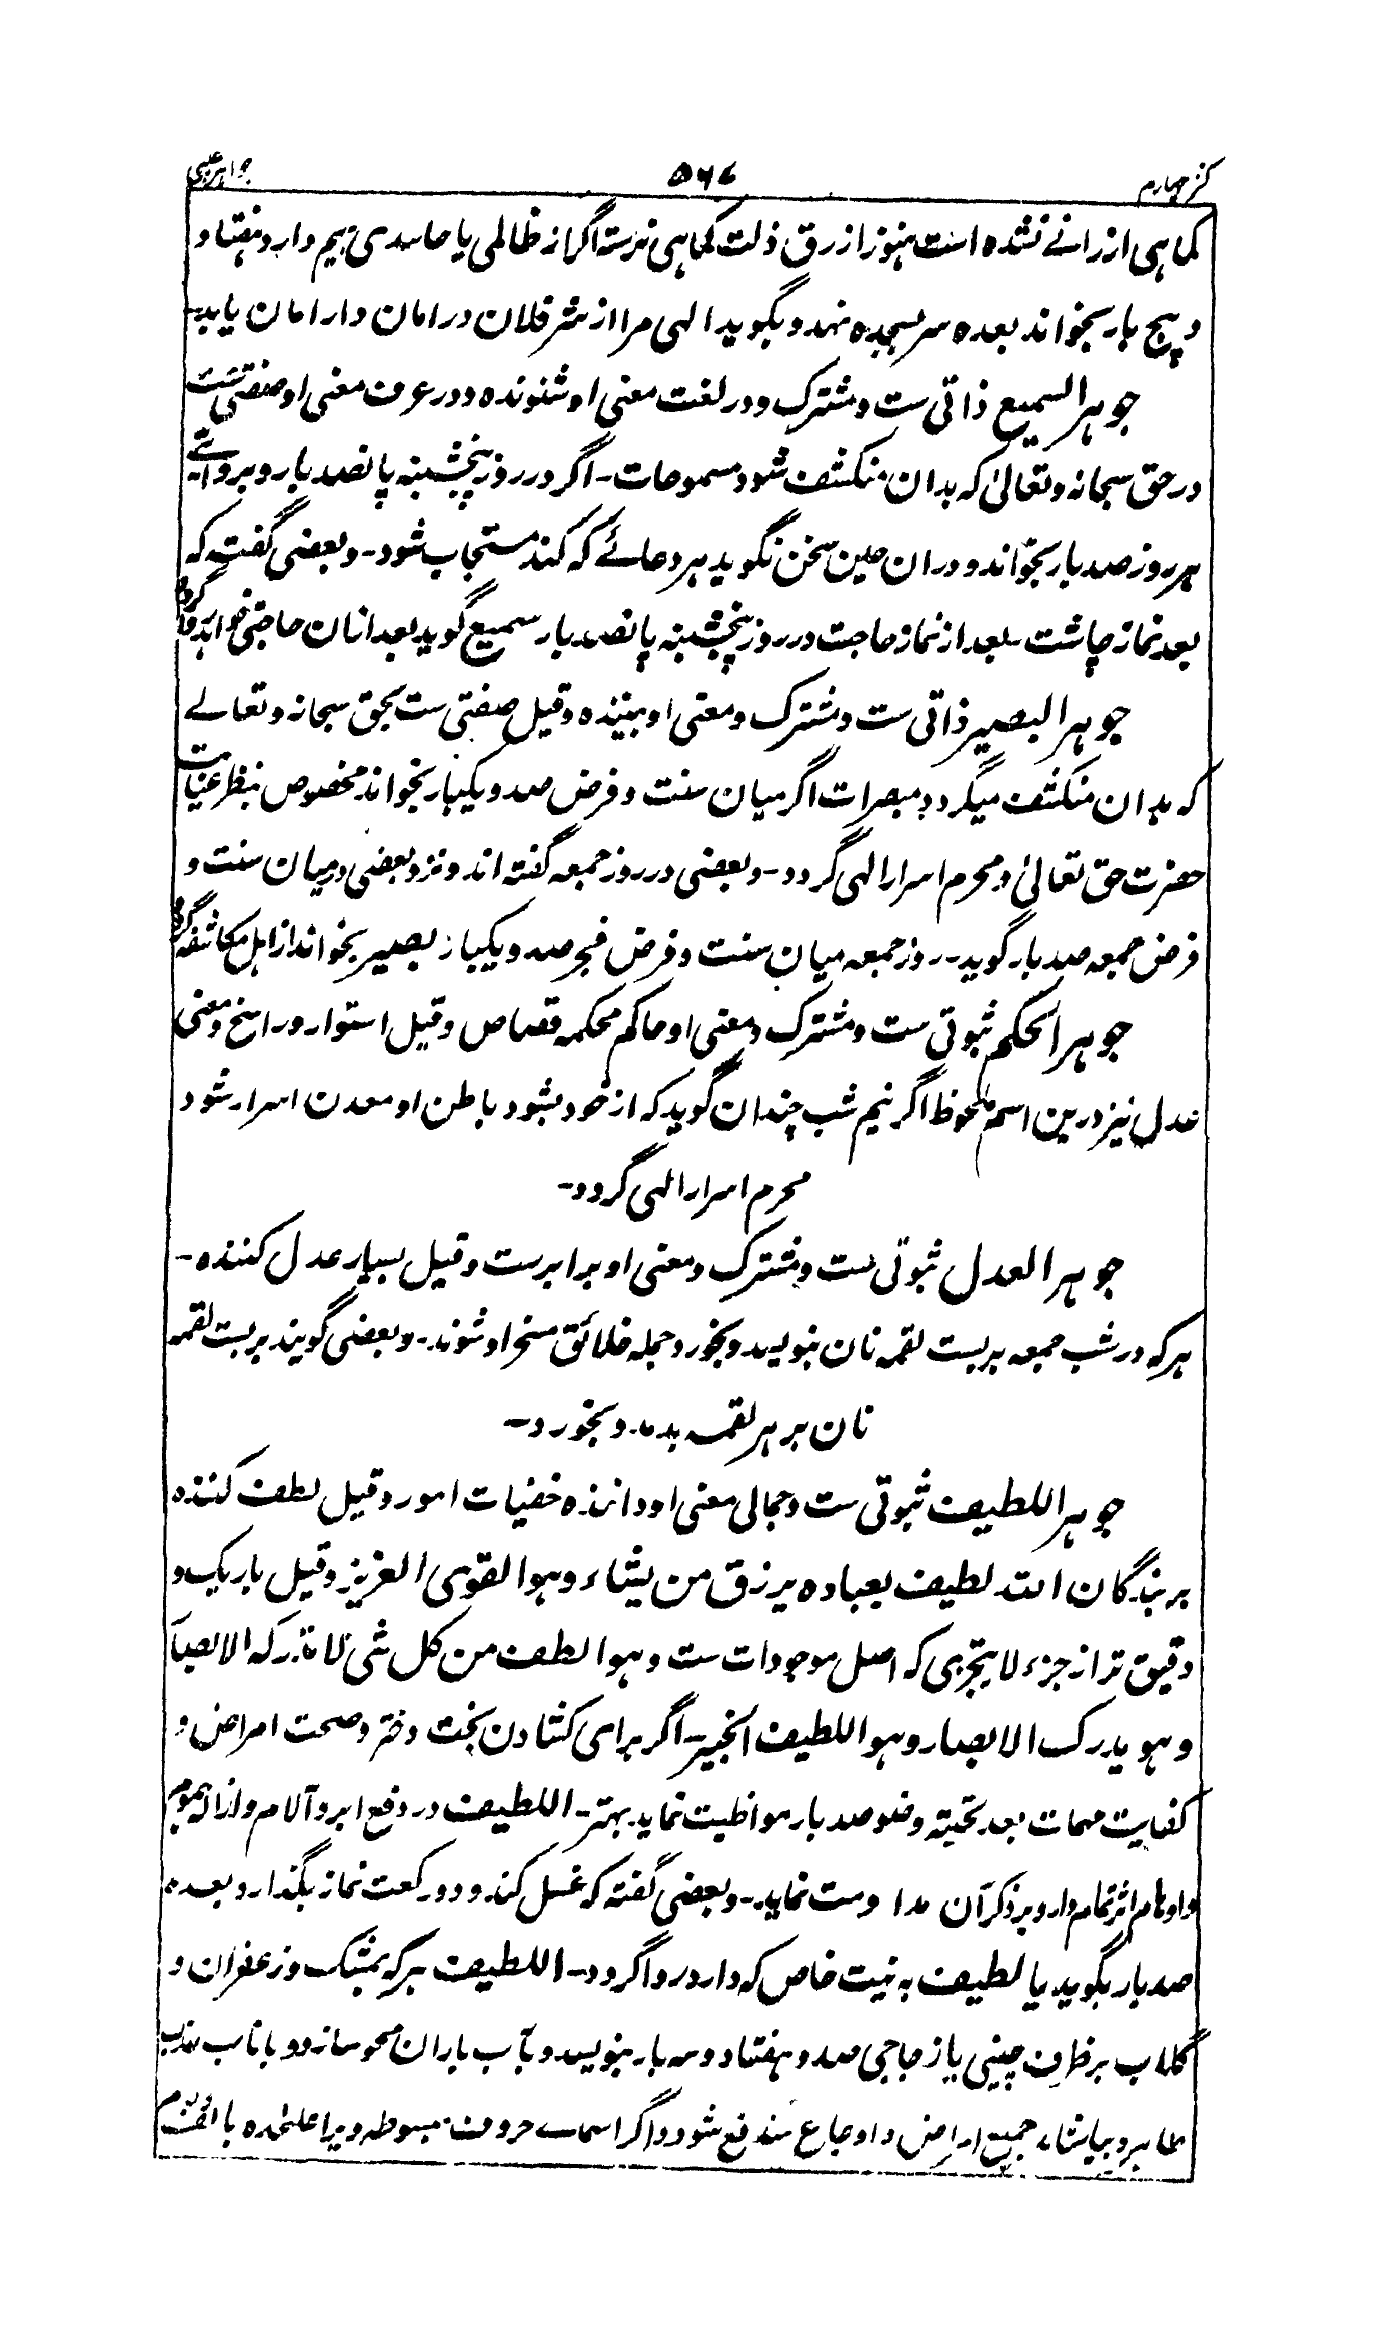 کنز چهارم ۵۶۷ جواهر غیبی
کماهی ارزانے نشده است هنوز از رق ذلت کماهی نرسته اگر از ظالمی یا حاسدی بیم دارد هفتاد و
و پنج بار بخواند بعده سر بسجده نهد و بگوید الهی مرا از شر فلان در امان دار امان یابد۔
جوهر السمیع ذاتی ست و مشترک و در لغت معنی او شنونده و در عرف معنی او صفتی ست
در حق سبحانه و تعالیٰ که بدان منکشف شود مسموعات۔ اگر در روز پنجشنبه پانصد بار و بروایتے
هر روز صد بار بخواند و دران حین سخن نگوید هر دعائے که کند مستجاب شود۔ و بعضی گفته که
بعد نماز چاشت بعد از نماز حاجت در روز پنجشنبه پانصد بار سمیع گوید بعد ازان حاجتی خواهد روا گردد
جوهر البصیر ذاتی ست و مشترک و معنی او بیننده و قیل صفتی ست بحق سبحانه و تعالے
که بدان منکشف میگردد مبصرات اگر میان سنت و فرض صد و یکبار بخواند مخصوص بنظر عنایت
حضرت حق تعالیٰ و محرم اسرار الهی گردد۔ و بعضی در روز جمعه گفته اند و نزد بعضی درمیان سنت و
فرض جمعه صد بار گوید۔ روز جمعه میان سنت و فرض فجر صد و یکبار بصیر بخواند از اهل مکاشفه گردد
جوهر الحکم ثبوتی ست و مشترک و معنی او حاکم محکمه قصاص و قیل استوار و راسخ و معنی
عدل نیز درین اسم ملحوظ اگر نیم شب چندان گوید که از خود بشود باطن او معدن اسرار شود
محرم اسرار الهی گردد۔
جوهر العدل ثبوتی ست و مشترک و معنی او برابرست و قیل بسیار عدل کننده۔
هر که در شب جمعه بر بست لقمه نان بنویسد و بخورد جمله خلائق مسخر او شوند۔ و بعضی گویند بر بست لقمه
نان بر هر لقمه بدمد و بخورد۔
جوهر اللطیف ثبوتی ست و جمالی معنی او داننده خفیات امور و قیل لطف کننده
بر بندگان الله لطیف بعباده یرزق من یشاء و هو القوی العزیز و قیل باریک و
دقیق تر از جزء لا یتجزی که اصل موجودات ست و هو الطف من کل شی لا تدرکه الابصار
و هو یدرک الابصار و هو اللطیف الخبیر۔ اگر برای کشادن بخت دختر و صحت امراض و
کفایت مهمات بعد تحیته وضو صد بار مواظبت نماید بهتر۔ اللطیف در دفع و آلام و ازاله هموم
و اوهام اثر تمام دارد بر ذکر آن مداومت نماید۔ و بعضی گفته که غسل کند و دو رکعت نماز بگذارد و بعده
صد بار بگوید یا لطیف به نیت خاص که دارد روا گردد۔ اللطیف هر که بمشک و زعفران و
گلاب بر ظرف چینی یا زجاجی صد و هفتاد و سه بار بنویسد و بآب باران محو سازد و با ناب
طاهر و بیاشامد جمیع امراض و اوجاع مندفع شود و اگر اسماے حروف مبسوطه ویرا علیٰحده با